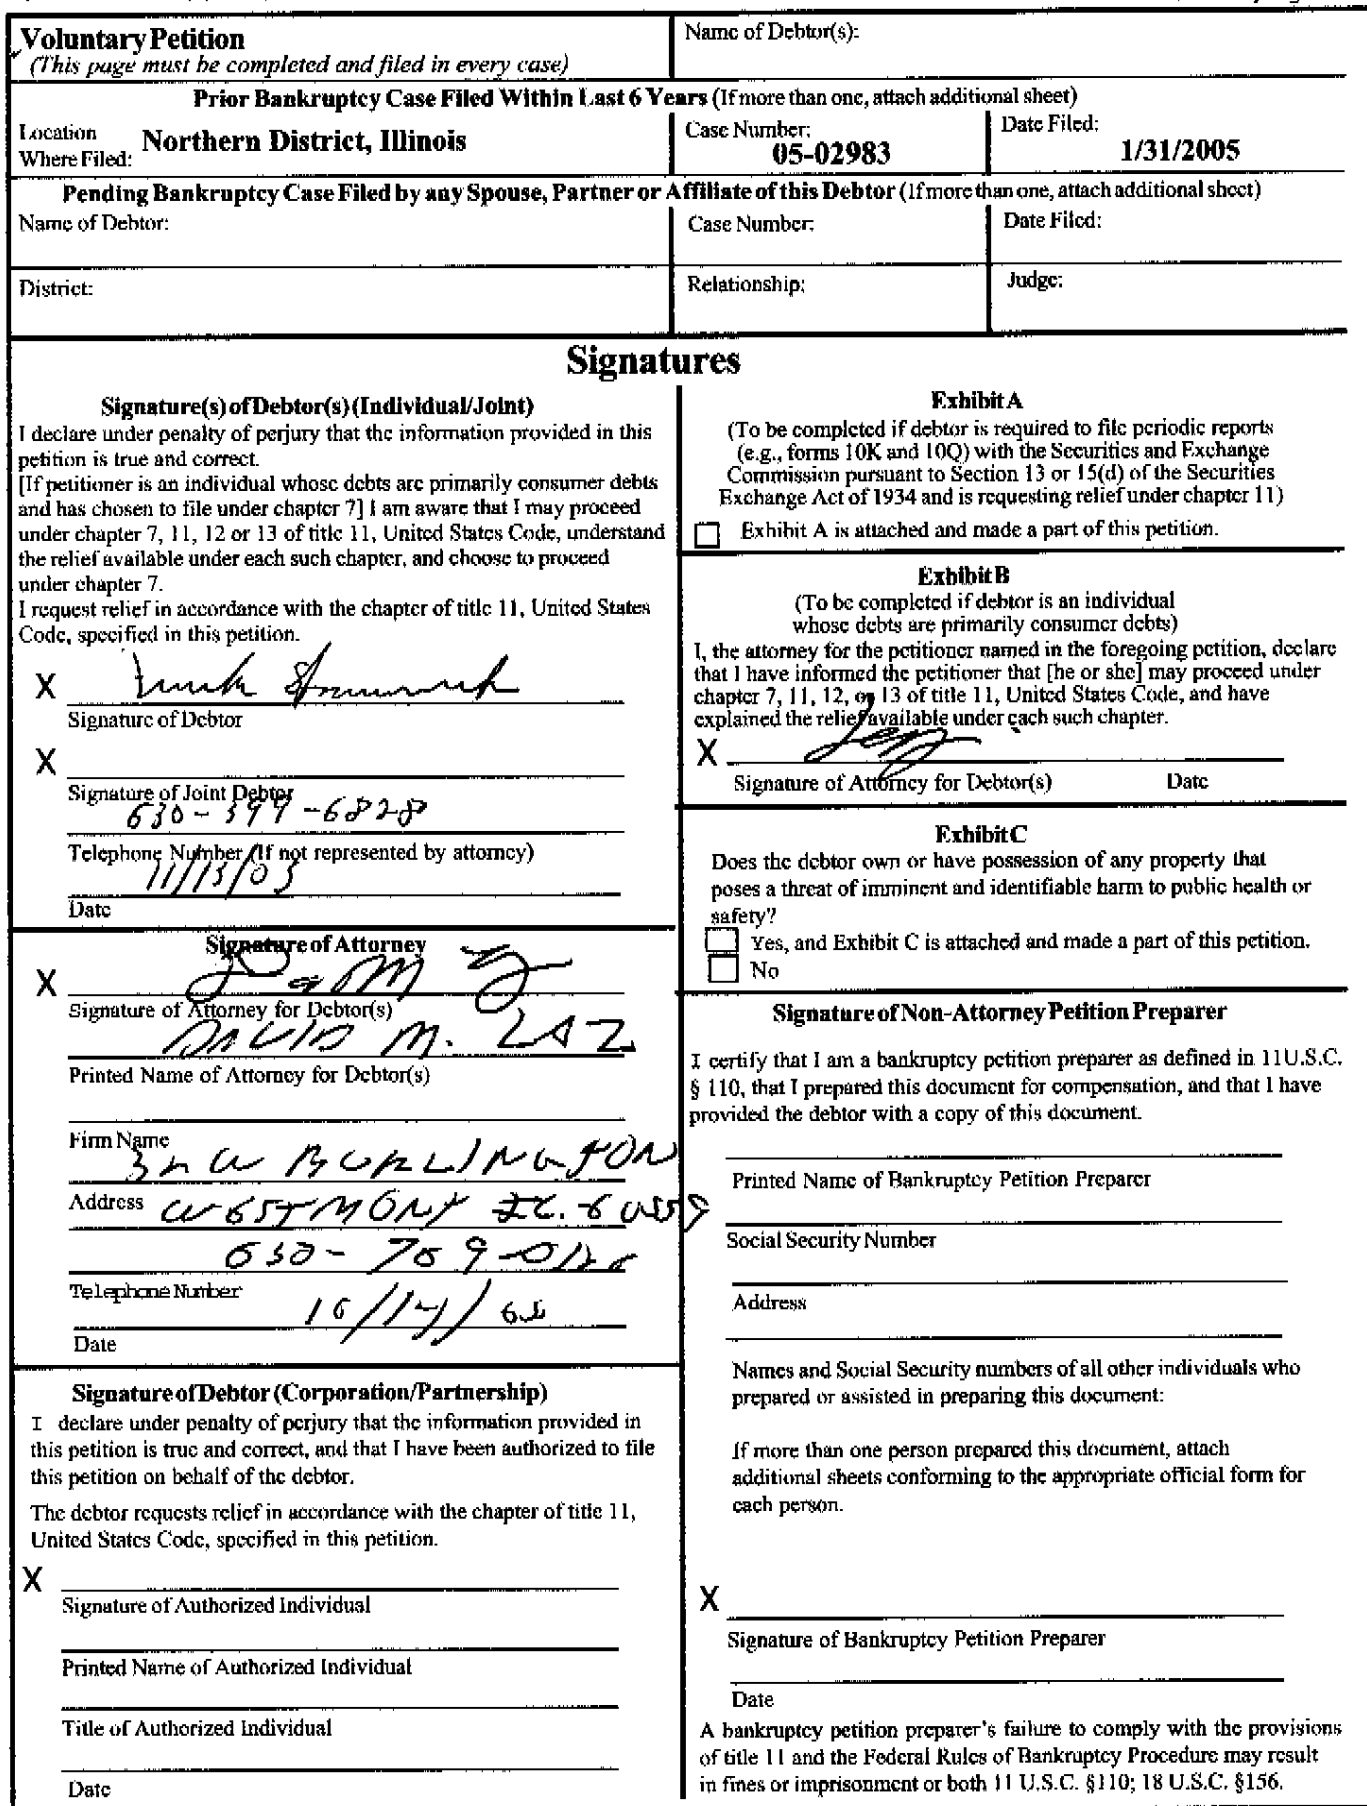 Voluntary Petition
(This page must be completed and filed in every case)
Name of Debtor(s):
Prior Bankruptcy Case Filed Within Last 6 Years (If more than one, attach additional sheet)
Location
Where Filed:
Northern District, Illinois
Case Number:
05-02983
Date Filed:
1/31/2005
Pending Bankruptcy Case Filed by any Spouse, Partner or Affiliate of this Debtor (If more than one, attach additional sheet)
Name of Debtor:
Case Number:
Date Filed:
District:
Relationship:
Judge:
Signatures
Signature(s) of Debtor(s) (Individual/Joint)
I declare under penalty of perjury that the information provided in this
petition is true and correct.
[If petitioner is an individual whose debts are primarily consumer debts
and has chosen to file under chapter 7] I am aware that I may proceed
under chapter 7, 11, 12 or 13 of title 11, United States Code, understand
the relief available under each such chapter, and choose to proceed
under chapter 7.
I request relief in accordance with the chapter of title 11, United States
Code, specified in this petition.
X
Signature of Debtor
X
Signature of Joint Debtor
630-399-6828
Telephone Number (If not represented by attorney)
Date
Signature of Attorney
X
Signature of Attorney for Debtor(s)
DAVID M. LAZ
Printed Name of Attorney for Debtor(s)
Firm Name
W BURLINGTON
Address
WESTMONT IL. 60559
Telephone Number
Date
Signature of Debtor (Corporation/Partnership)
I declare under penalty of perjury that the information provided in
this petition is true and correct, and that I have been authorized to file
this petition on behalf of the debtor.
The debtor requests relief in accordance with the chapter of title 11,
United States Code, specified in this petition.
X
Signature of Authorized Individual
Printed Name of Authorized Individual
Title of Authorized Individual
Date
Exhibit A
(To be completed if debtor is required to file periodic reports
(e.g., forms 10K and 10Q) with the Securities and Exchange
Commission pursuant to Section 13 or 15(d) of the Securities
Exchange Act of 1934 and is requesting relief under chapter 11)
Exhibit A is attached and made a part of this petition.
Exhibit B
(To be completed if debtor is an individual
whose debts are primarily consumer debts)
I, the attorney for the petitioner named in the foregoing petition, declare
that I have informed the petitioner that [he or she] may proceed under
chapter 7, 11, 12, or 13 of title 11, United States Code, and have
explained the relief available under each such chapter.
X
Signature of Attorney for Debtor(s) Date
Exhibit C
Does the debtor own or have possession of any property that
poses a threat of imminent and identifiable harm to public health or
safety?
Yes, and Exhibit C is attached and made a part of this petition.
No
Signature of Non-Attorney Petition Preparer
I certify that I am a bankruptcy petition preparer as defined in 11U.S.C.
§ 110, that I prepared this document for compensation, and that I have
provided the debtor with a copy of this document.
Printed Name of Bankruptcy Petition Preparer
Social Security Number
Address
Names and Social Security numbers of all other individuals who
prepared or assisted in preparing this document:
If more than one person prepared this document, attach
additional sheets conforming to the appropriate official form for
each person.
X
Signature of Bankruptcy Petition Preparer
Date
A bankruptcy petition preparer's failure to comply with the provisions
of title 11 and the Federal Rules of Bankruptcy Procedure may result
in fines or imprisonment or both 11 U.S.C. §110; 18 U.S.C. §156.